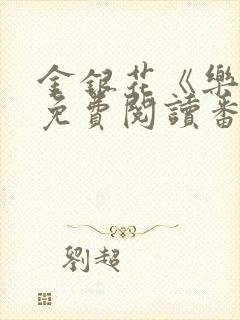 金銀花《樂
免費閱讀番
劉超